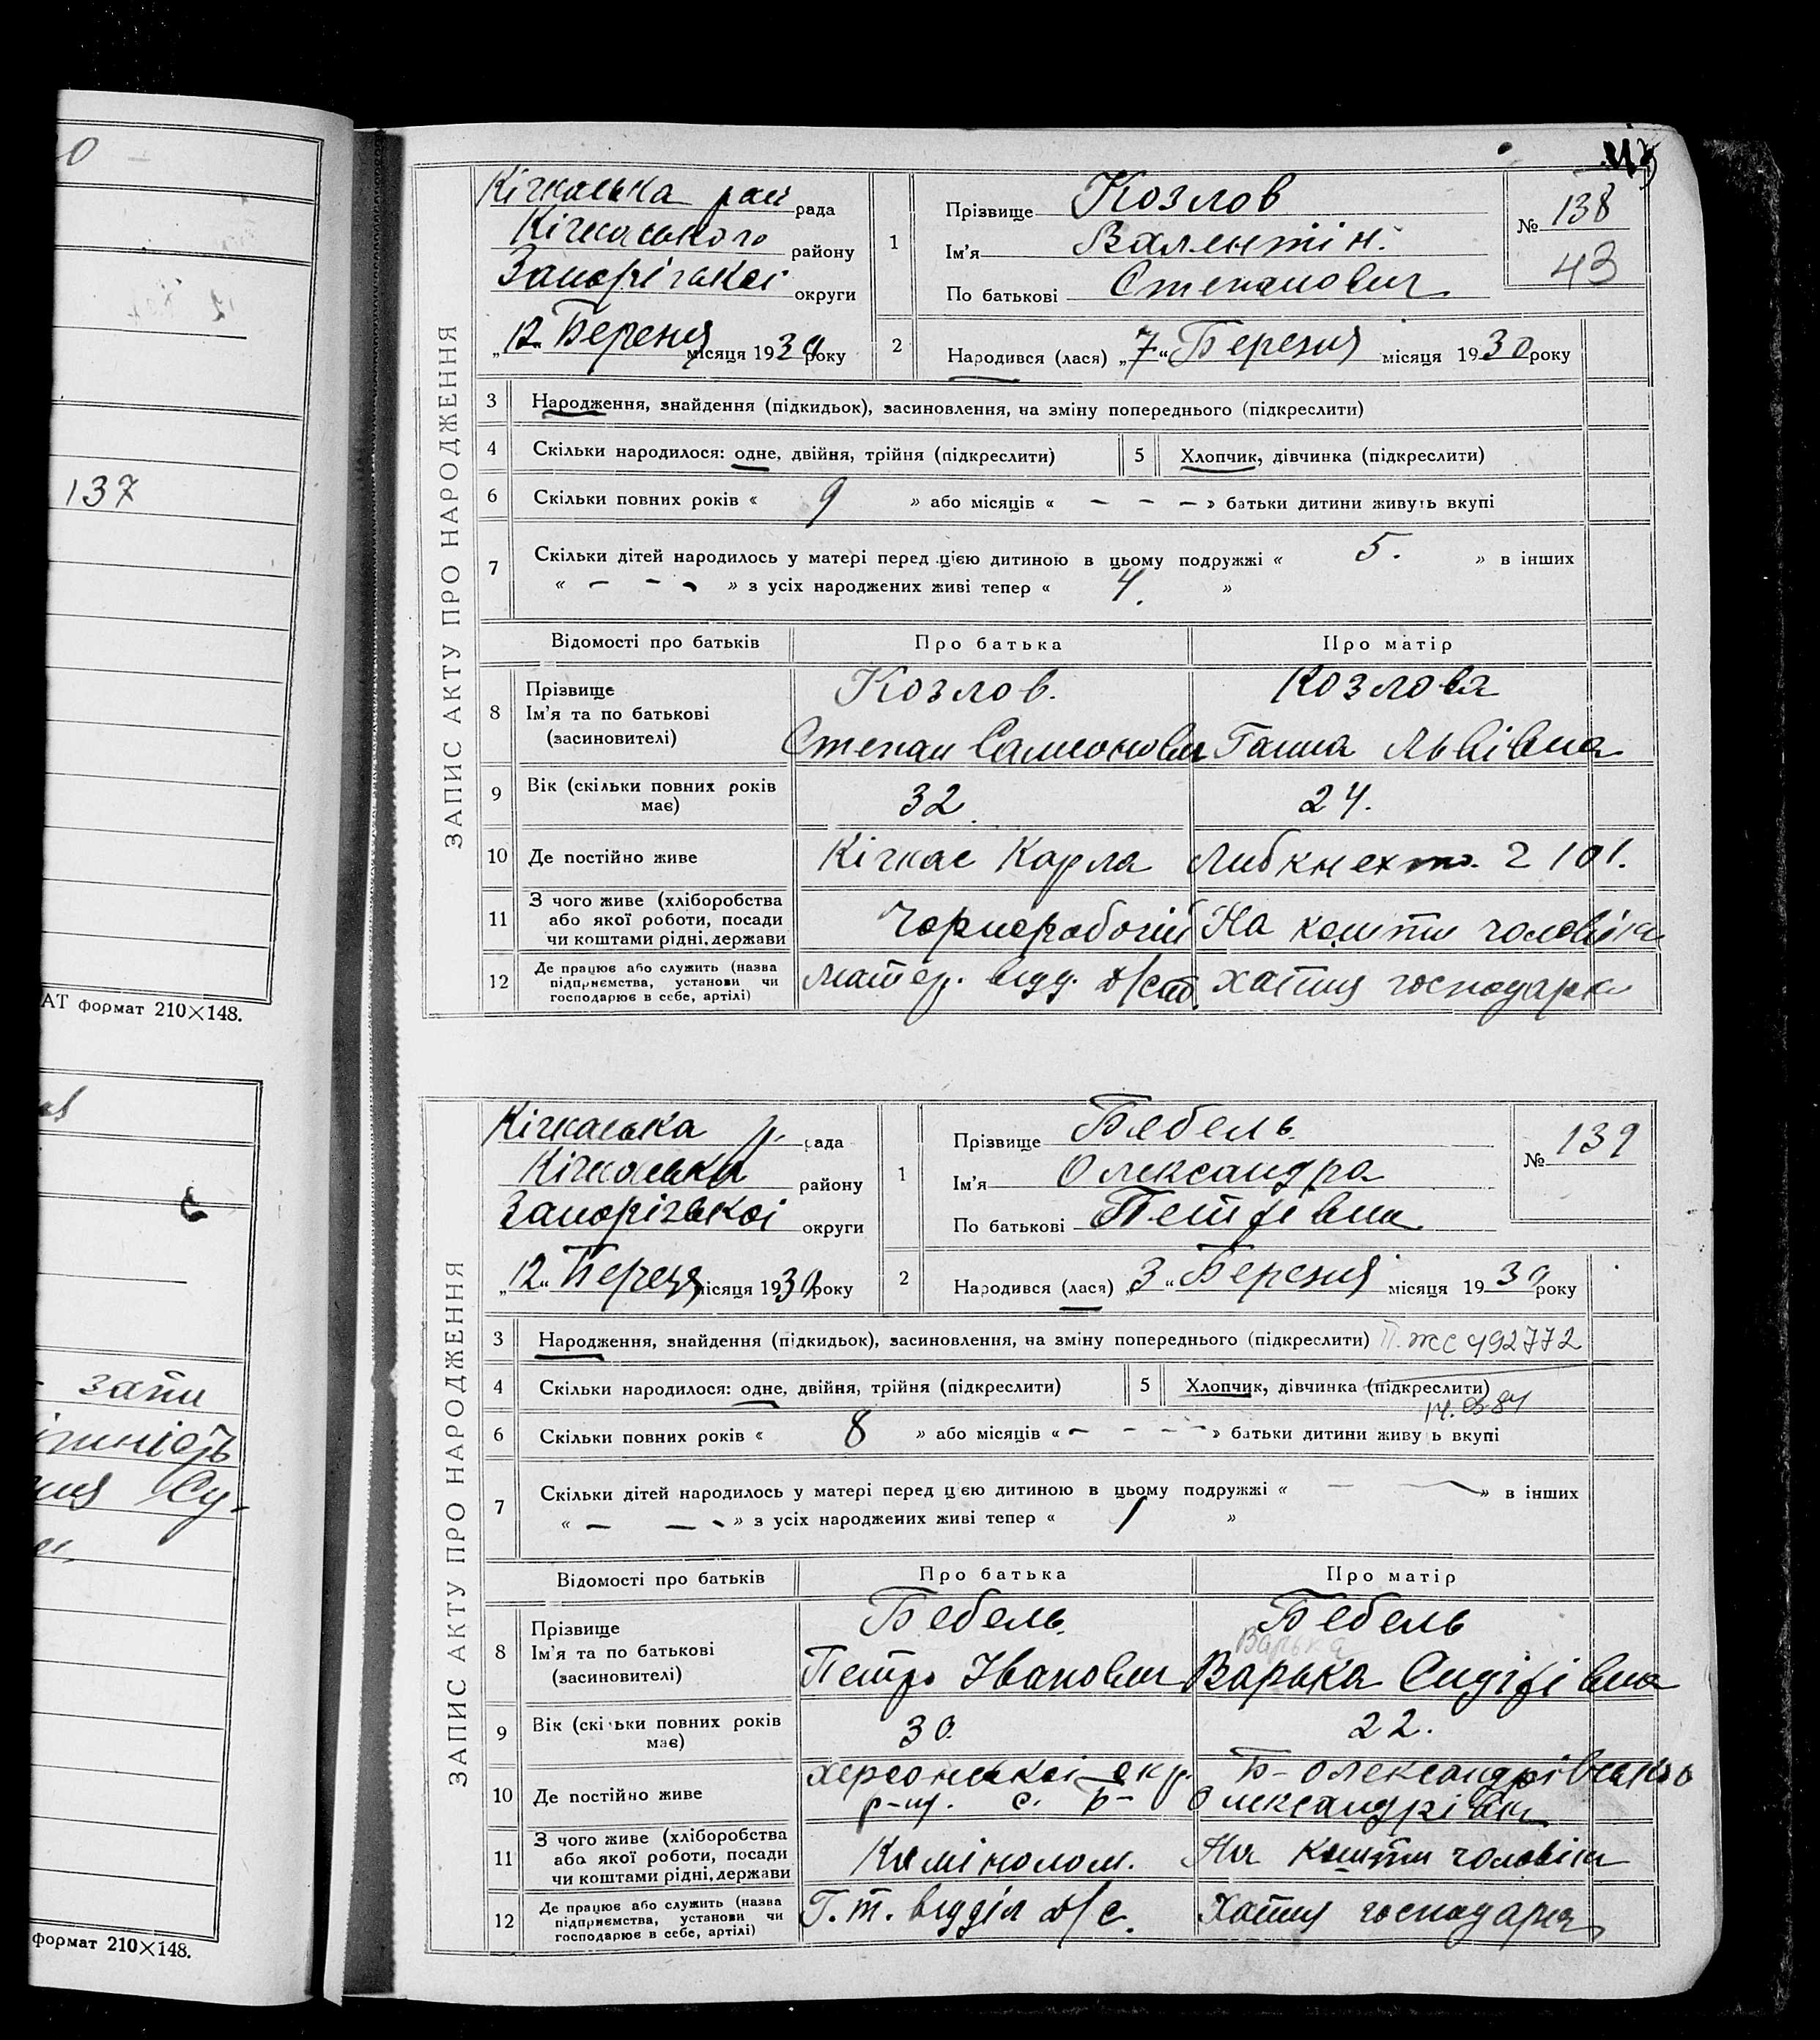 0 -
137
АТ формат 210×148.
зати
Су-
формат 210×148.
ЗАПИС АКТУ ПРО НАРОДЖЕННЯ
Кічкаська рай рада
Кічкаського району
Запорізької округи
„12" Березня місяця 1930 року
1
Прізвище Козлов
Ім'я Валентін.
По батькові Степанович
№ 138
43
2
Народився (лася) „7" Березня місяця 1930 року
3 Народження, знайдення (підкидьок), засиновлення, на зміну попереднього (підкреслити)
4 Скільки народилося: одне, двійня, трійня (підкреслити) 5 Хлопчик, дівчинка (підкреслити)
6 Скільки повних років « 9 » або місяців « – – – » батьки дитини живуть вкупі
7 Скільки дітей народилось у матері перед цією дитиною в цьому подружжі « 5. » в інших
« – – – » з усіх народжених живі тепер « 4. »
Відомості про батьків Про батька Про матір
8 Прізвище Ім'я та по батькові (засиновителі)
Козлов. Козлова
Степан Самсонович Ганна Львівна
9 Вік (скільки повних років має) 32. 24.
10 Де постійно живе Кічкас Карла Либкнехта. 2 101.
11 З чого живе (хліборобства або якої роботи, посади чи коштами рідні, держави Чорноробочий На кошти чоловіка
12 Де працює або служить (назва підприємства, установи чи господарює в себе, артілі) Матер. відд. д/сп. хатня господарка
ЗАПИС АКТУ ПРО НАРОДЖЕННЯ
Кічкаська р. рада
Кічкаська району
Запорізької округи
„12" Береня місяця 1930 року
1
Прізвище Бебель
Ім'я Олександра
По батькові Петрівна
№ 139
2
Народився (лася) „3" Березня місяця 1930 року
3 Народження, знайдення (підкидьок), засиновлення, на зміну попереднього (підкреслити) П. ЖС 492772
4 Скільки народилося: одне, двійня, трійня (підкреслити) 5 Хлопчик, дівчинка (підкреслити)
14.03 84
6 Скільки повних років « 8 » або місяців « – – – – » батьки дитини живу ь вкупі
7 Скільки дітей народилось у матері перед цією дитиною в цьому подружжі « – — » в інших
« – – – » з усіх народжених живі тепер « 1 »
Відомості про батьків Про батька Про матір
8 Прізвище Ім'я та по батькові (засиновителі)
Бебель. Бебель
Варька
Петро Іванович Варька Сидірівна
9 Вік (скільки повних років має) 30. 22.
10 Де постійно живе
Херсонської окр. Б-Олександрівсько
р-ну. с. Б- Олександрівка
11 З чого живе (хліборобства або якої роботи, посади чи коштами рідні, держави Камінолом. На кошти чоловіка
12 Де працює або служить (назва підприємства, установи чи господарює в себе, артілі) Г.т. відділ д/с. Хатня господарка